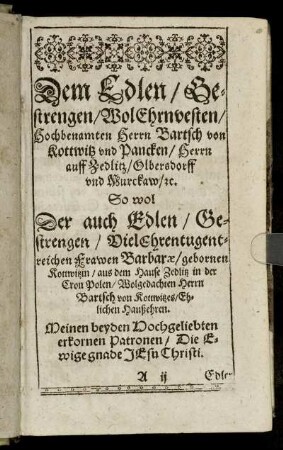 Dem Edlen / Ge-
strengen / WolEhrnvesten /
Hochbenamten Herrn Bartsch von
Kottwitz vnd Pancken / Herrn
auff Zedlitz / Olbersdorff
vnd Wurckaw / ꝛc.
So wol
Der auch Edlen / Ge-
strengen / VielEhrentugent-
reichen Frawen Barbaræ / gebornen
Kottwitzin / aus dem Hause Zedlitz in der
Cron Polen / Wolgedachten Herrn
Bartsch von Kottwitzes / Eh-
lichen Haußehren.
Meinen beyden Hochgeliebten
erkornen Patronen / Die E-
wige gnade JEsu Christi.
A ij
Edler